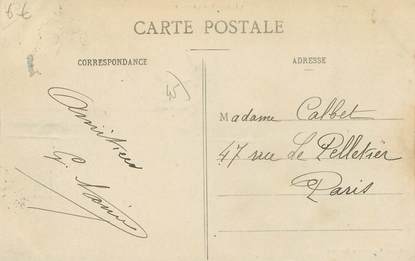 6-6
CARTE POSTALE
CORRESPONDANCE
ADRESSE
45
Amitiés
G.
Madame Calbet
47 rue Le Pelletier
Paris